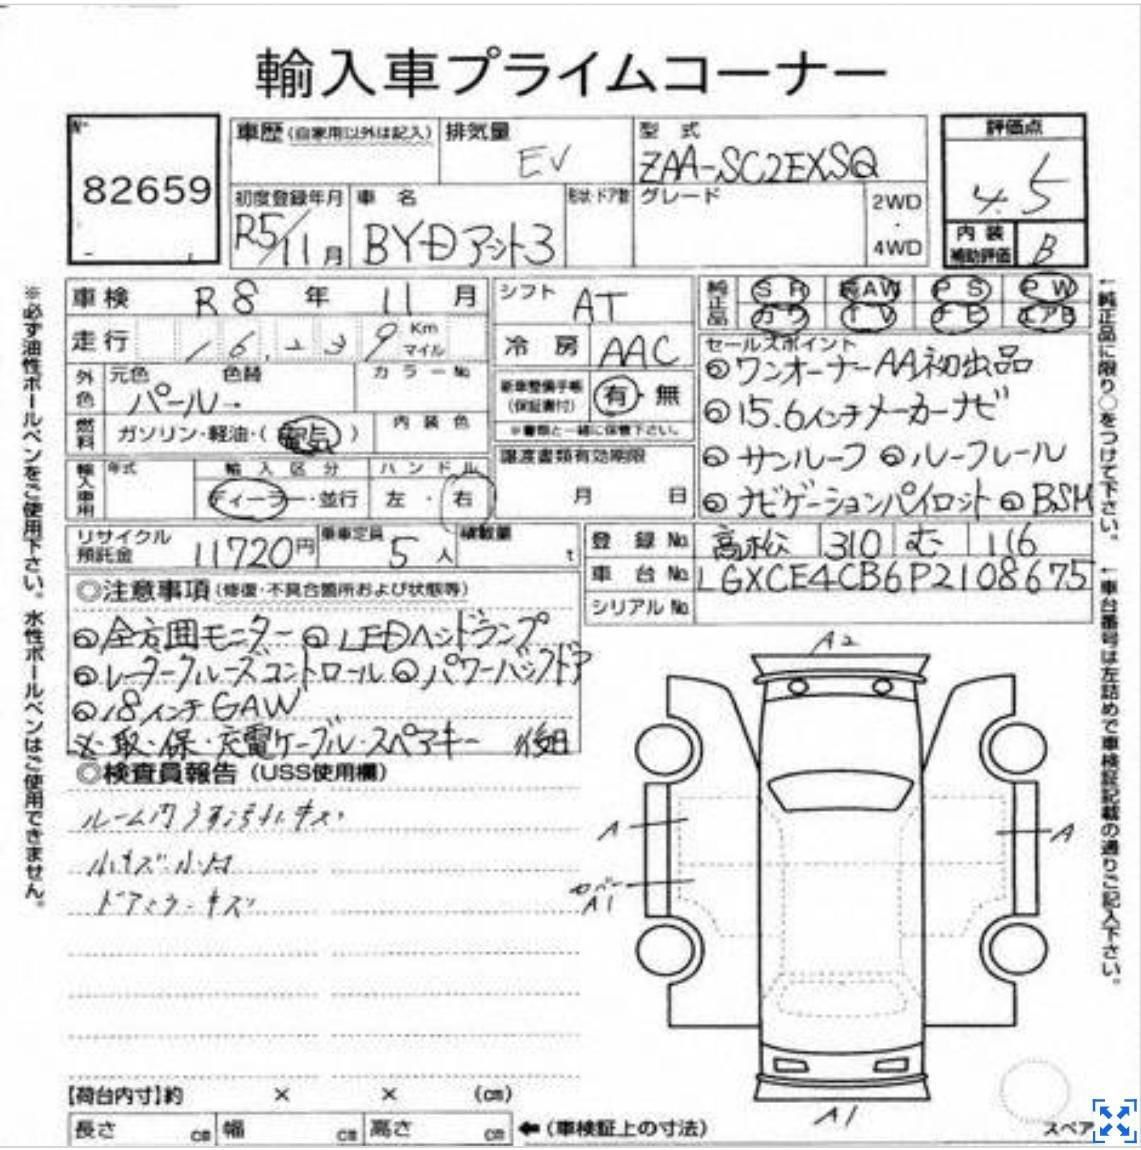 輸入車プライムコーナー
No
82659
車歴(自家用以外は記入)
排気量 EV
型式 ZAA-SC2EXSQ
評価点 4.5
初度登録年月 R5/11月
車名 BYDアット3
形状・ドア数
グレード
2WD・4WD
内装補助評価 B
車検 R8年 11月
シフト AT
純正品 SR 純AW PS PW
カワ TV ナビ エアB
走行 16,239 Km マイル
冷房 AAC
外色 元色 色替 パール
カラーNo
新車整備手帳(保証書付) 有・無
※書類と一緒に保管下さい。
燃料 ガソリン・軽油・(電気)
内装色
セールスポイント
◎ワンオーナーAA初出品
◎15.6インチメーカーナビ
◎サンルーフ ◎ルーフレール
◎ナビゲーションパイロット ◎BSM
輸入車用 年式
輸入区分 ディーラー・並行
ハンドル 左・右
譲渡書類有効期限 月 日
リサイクル預託金 11720円
乗車定員 5人
積載量 t
登録No. 高松 310 む 116
車台No. LGXCE4CB6P2108675
シリアルNo.
◎注意事項(修復・不具合箇所および状態等)
◎全方囲モニター ◎LEDヘッドランプ
◎レーダークルーズコントロール ◎パワーバックドア
◎18インチGAW
取・保・充電ケーブル・スペアキー 後日
◎検査員報告(USS使用欄)
ルーム内うす汚れ キズ
小キズ・小凹
ドアミラーキズ
A2
A
A
カバー
A1
A1
【荷台内寸】約 × × (cm)
長さ cm 幅 cm 高さ cm ←(車検証上の寸法)
スペア
※必ず油性ボールペンをご使用下さい。水性ボールペンはご使用できません。
←純正品に限り○をつけて下さい。
←車台番号は左詰めで車検証記載の通りご記入下さい。